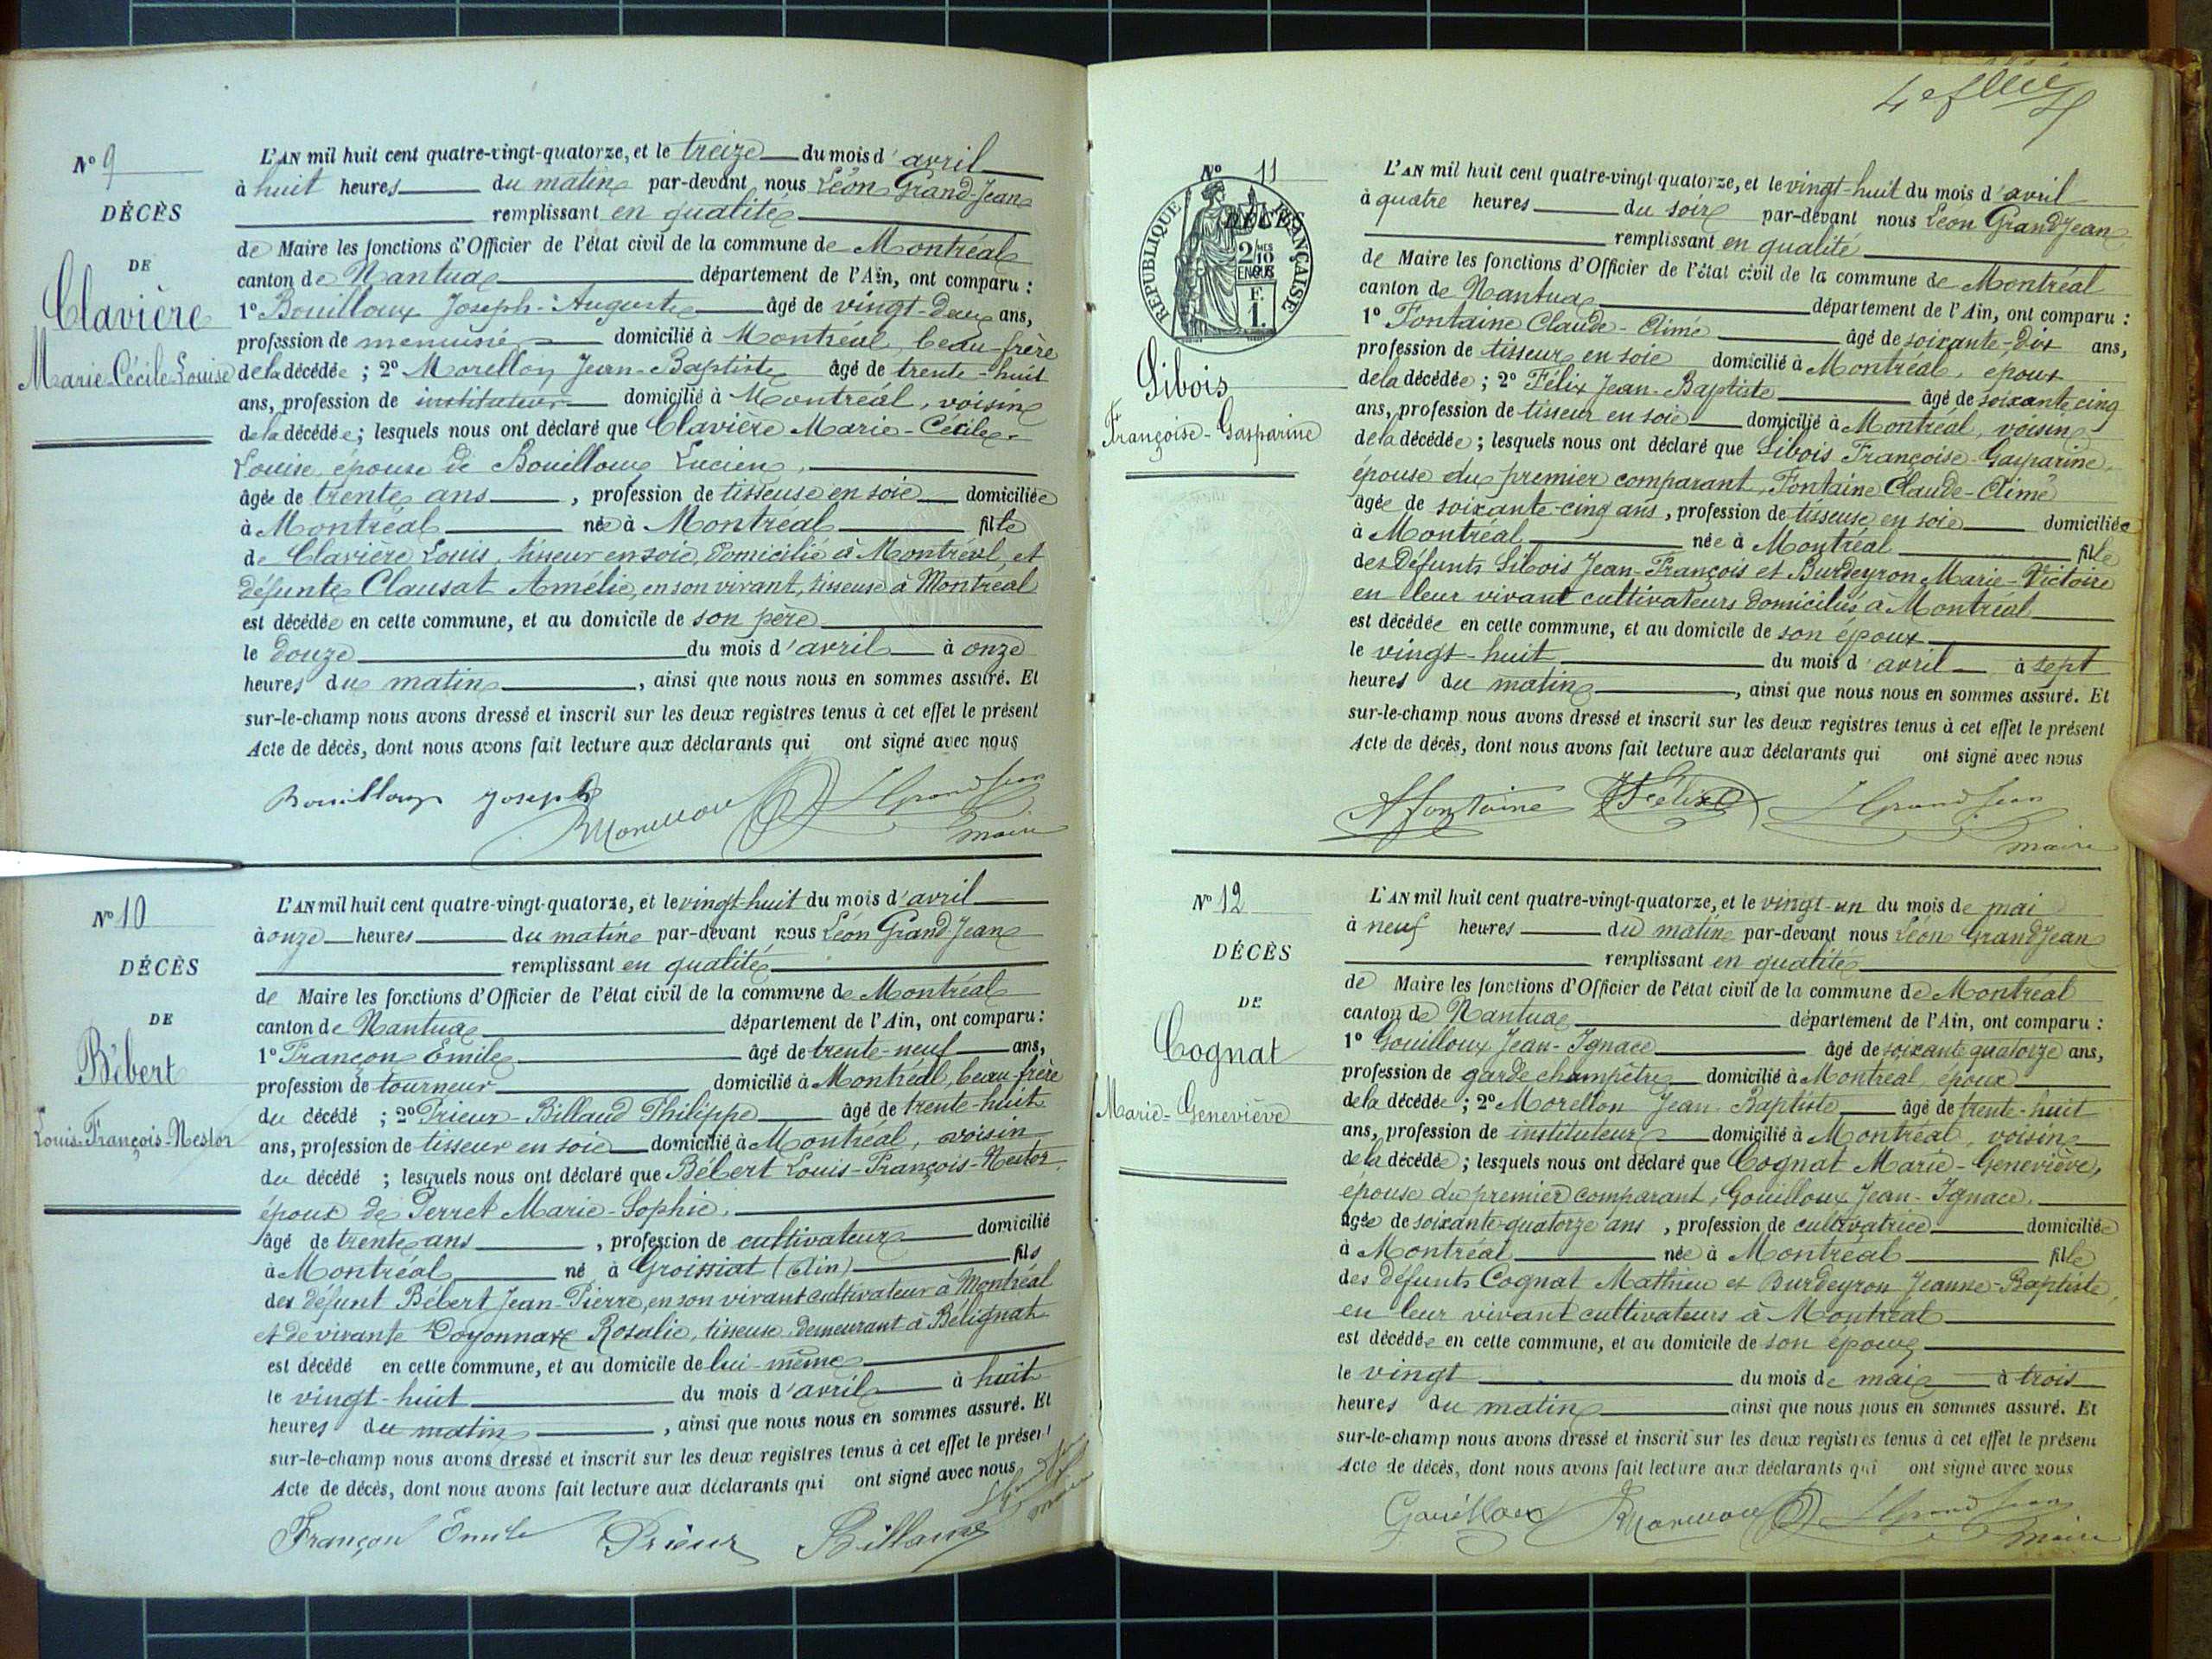 N° 9
DÉCÈS
DE
Clavière
Marie-Cécile-Louise
L'AN mil huit cent quatre-vingt-quatorze, et le treize du mois d'avril
à huit heures du matin par-devant nous Léon Grand-Jean
remplissant en qualité
de Maire les fonctions d'Officier de l'état civil de la commune de Montréal
canton de Nantua département de l'Ain, ont comparu :
1° Bouilloux Joseph-Auguste âgé de vingt-deux ans,
profession de menuisié domicilié à Montréal, beau-frère
de la décédée ; 2° Morellon Jean-Baptiste âgé de trente-huit
ans, profession de instituteur domicilié à Montréal, voisin
de la décédée ; lesquels nous ont déclaré que Clavière Marie-Cécile-
Louise, épouse de Bouilloux Lucien,
âgée de trente ans, profession de tisseuse en soie domiciliée
à Montréal née à Montréal fille
de Clavière Louis, tisseur en soie, domicilié à Montréal, et
défunte Clausat Amélie, en son vivant, tisseuse à Montréal
est décédée en cette commune, et au domicile de son père
le douze du mois d'avril à onze
heures du matin, ainsi que nous nous en sommes assuré. Et
sur-le-champ nous avons dressé et inscrit sur les deux registres tenus à cet effet le présent
Acte de décès, dont nous avons fait lecture aux déclarants qui ont signé avec nous
Bouilloux Joseph Morellon LGrandJean
maire
N° 10
DÉCÈS
DE
Bébert
Louis-François-Nestor
L'AN mil huit cent quatre-vingt-quatorze, et le vingt-huit du mois d'avril
à onze heures du matin par-devant nous Léon GrandJean
remplissant en qualité
de Maire les fonctions d'Officier de l'état civil de la commune de Montréal
canton de Nantua département de l'Ain, ont comparu :
1° Françon Emile âgé de trente-neuf ans,
profession de tourneur domicilié à Montréal, beau-frère
du décédé ; 2° Prieur-Billaud Philippe âgé de trente-huit
ans, profession de tisseur en soie domicilié à Montréal, voisin
du décédé ; lesquels nous ont déclaré que Bébert Louis-François-Nestor,
époux de Perret Marie-Sophie,
âgé de trente ans, profession de cultivateur domicilié
à Montréal né à Groissiat (Ain) fils
des défunt Bébert Jean-Pierre, en son vivant cultivateur à Montréal
et de vivante Doyonnax Rosalie, tisseuse, demeurant à Bélignat
est décédé en cette commune, et au domicile de lui-même
le vingt-huit du mois d'avril à huit
heures du matin, ainsi que nous nous en sommes assuré. Et
sur-le-champ nous avons dressé et inscrit sur les deux registres tenus à cet effet le présent
Acte de décès, dont nous avons fait lecture aux déclarants qui ont signé avec nous
LGrandJean
maire
Françon Emile Prieur Billaud
4e
N° 11
DÉCÈS
RÉPUBLIQUE FRANÇAISE
2/10
EN SUS
F.
1.
Sibois
Françoise-Gasparine
L'AN mil huit cent quatre-vingt-quatorze, et le vingt-huit du mois d'avril
à quatre heures du soir par-devant nous Léon GrandJean
remplissant en qualité
de Maire les fonctions d'Officier de l'état civil de la commune de Montréal
canton de Nantua département de l'Ain, ont comparu :
1° Fontaine Claude-Aimé âgé de soixante-dix ans,
profession de tisseur en soie domicilié à Montréal, époux
de la décédée ; 2° Félix Jean-Baptiste âgé de soixante cinq
ans, profession de tisseur en soie domicilié à Montréal, voisin
de la décédée ; lesquels nous ont déclaré que Sibois Françoise-Gasparine,
épouse du premier comparant, Fontaine Claude-Aimé
âgée de soixante-cinq ans, profession de tisseuse en soie domiciliée
à Montréal née à Montréal fille
des défunts Sibois Jean-François et Burdeyron Marie-Victoire
en leur vivant cultivateurs domiciliés à Montréal
est décédée en cette commune, et au domicile de son époux
le vingt-huit du mois d'avril à sept
heures du matin, ainsi que nous nous en sommes assuré. Et
sur-le-champ nous avons dressé et inscrit sur les deux registres tenus à cet effet le présent
Acte de décès, dont nous avons fait lecture aux déclarants qui ont signé avec nous
Fontaine Félix LGrandJean
maire
N° 12
DÉCÈS
DE
Cognat
Marie-Geneviève
L'AN mil huit cent quatre-vingt-quatorze, et le vingt-un du mois de mai
à neuf heures du matin par-devant nous Léon GrandJean
remplissant en qualité
de Maire les fonctions d'Officier de l'état civil de la commune de Montréal
canton de Nantua département de l'Ain, ont comparu :
1° Gouilloux Jean-Ignace âgé de soixante quatorze ans,
profession de garde champêtre domicilié à Montréal, époux
de la décédée ; 2° Morellon Jean-Baptiste âgé de trente-huit
ans, profession de instituteur domicilié à Montréal, voisin
de la décédée ; lesquels nous ont déclaré que Cognat Marie-Geneviève,
épouse du premier comparant, Gouilloux Jean-Ignace,
âgée de soixante-quatorze ans, profession de cultivatrice domiciliée
à Montréal née à Montréal fille
des défunts Cognat Mathieu et Burdeyron Jeanne-Baptiste,
en leur vivant cultivateurs à Montréal
est décédée en cette commune, et au domicile de son époux
le vingt du mois de mai à trois
heures du matin ainsi que nous nous en sommes assuré. Et
sur-le-champ nous avons dressé et inscrit sur les deux registres tenus à cet effet le présent
Acte de décès, dont nous avons fait lecture aux déclarants qui ont signé avec nous
Gouilloux Morellon LGrandJean
maire